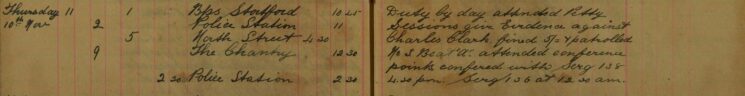 Thursday 11 1 Bps Stortford 10 25 Duty by day attended Petty
10th Nov 2 Police Station 11 Sessions give Evidence against
5 North Street 4.30 Charles Clark fined 5/- & patrolled
9 The Chantry 12.30 No 3 Beat attended conference
points confered with Serg 138
2 30 Police Station 2 30 4.30 pm Serg 136 at 12.30 am.